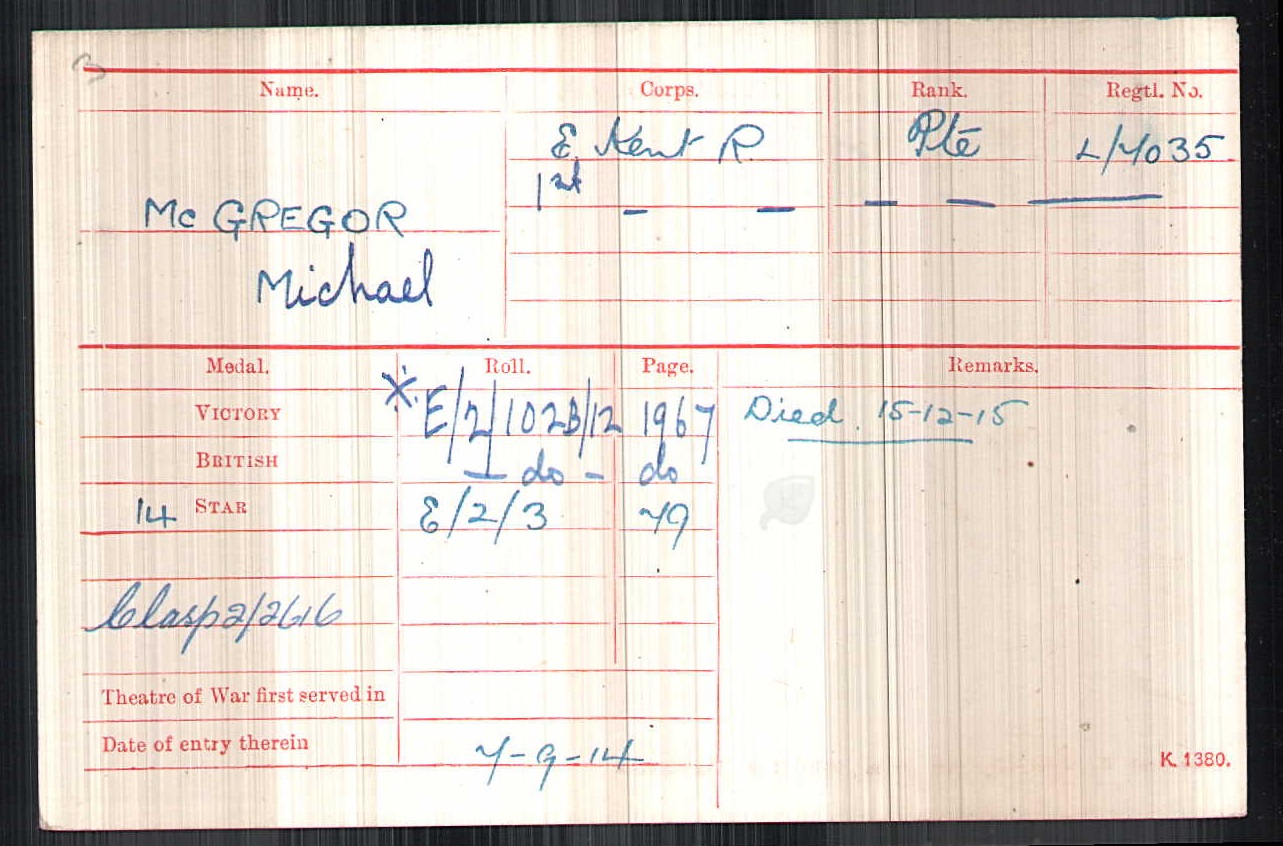 Name. Corps. Rank. Regtl. No.
E. Kent R Pte L/7035
1st — — — — —
Mc GREGOR
Michael
Medal. Roll. Page. Remarks.
VICTORY * E/2/102B/12 1967 Died. 15-12-15
BRITISH — do — do
14 STAR E/2/3 79
Clasp 2/2616
Theatre of War first served in
Date of entry therein 7-9-14
K. 1380.